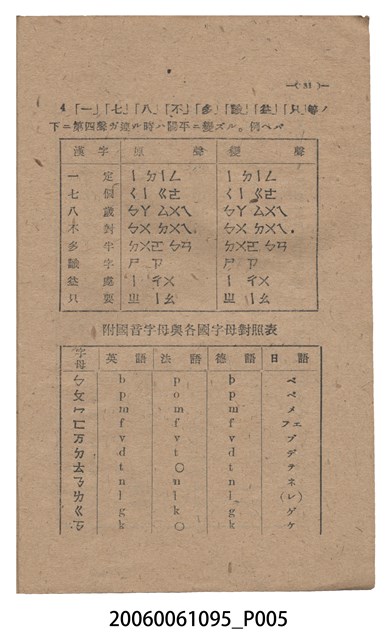 —( 31 )—
4「一」「七」「八」「不」「多」「識」「益」「只」等ノ
下ニ第四聲ガ連ル時ハ陽平ニ變ズル。例ヘバ
漢字 原聲 變聲
一定 ㄧ ㄉㄧㄥ ㄧ ㄉㄧㄥ
七個 ㄑㄧ ㄍㄜ ㄑㄧ ㄍㄜ
八歲 ㄅㄚ ㄙㄨㄟ ㄅㄚ ㄙㄨㄟ
不對 ㄅㄨ ㄉㄨㄟ ㄅㄨ ㄉㄨㄟ
多半 ㄉㄨㄛ ㄅㄢ ㄉㄨㄛ ㄅㄢ
識字 ㄕ ㄗ ㄕ ㄗ
益處 ㄧ ㄔㄨ ㄧ ㄔㄨ
只要 ㄓ ㄧㄠ ㄓ ㄧㄠ
附國音字母與各國字母對照表
字母 英語 法語 德語 日語
ㄅ b p b ペ
ㄆ p o p ペ
ㄇ m m m メ
ㄈ f f f フェ
ㄪ v v v ブ
ㄉ d t d デ
ㄊ t ○ t テ
ㄋ n n n ネ
ㄌ l l l (レ)
ㄍ g k g ゲ
ㄎ k ○ k ケ
20060061095_P005